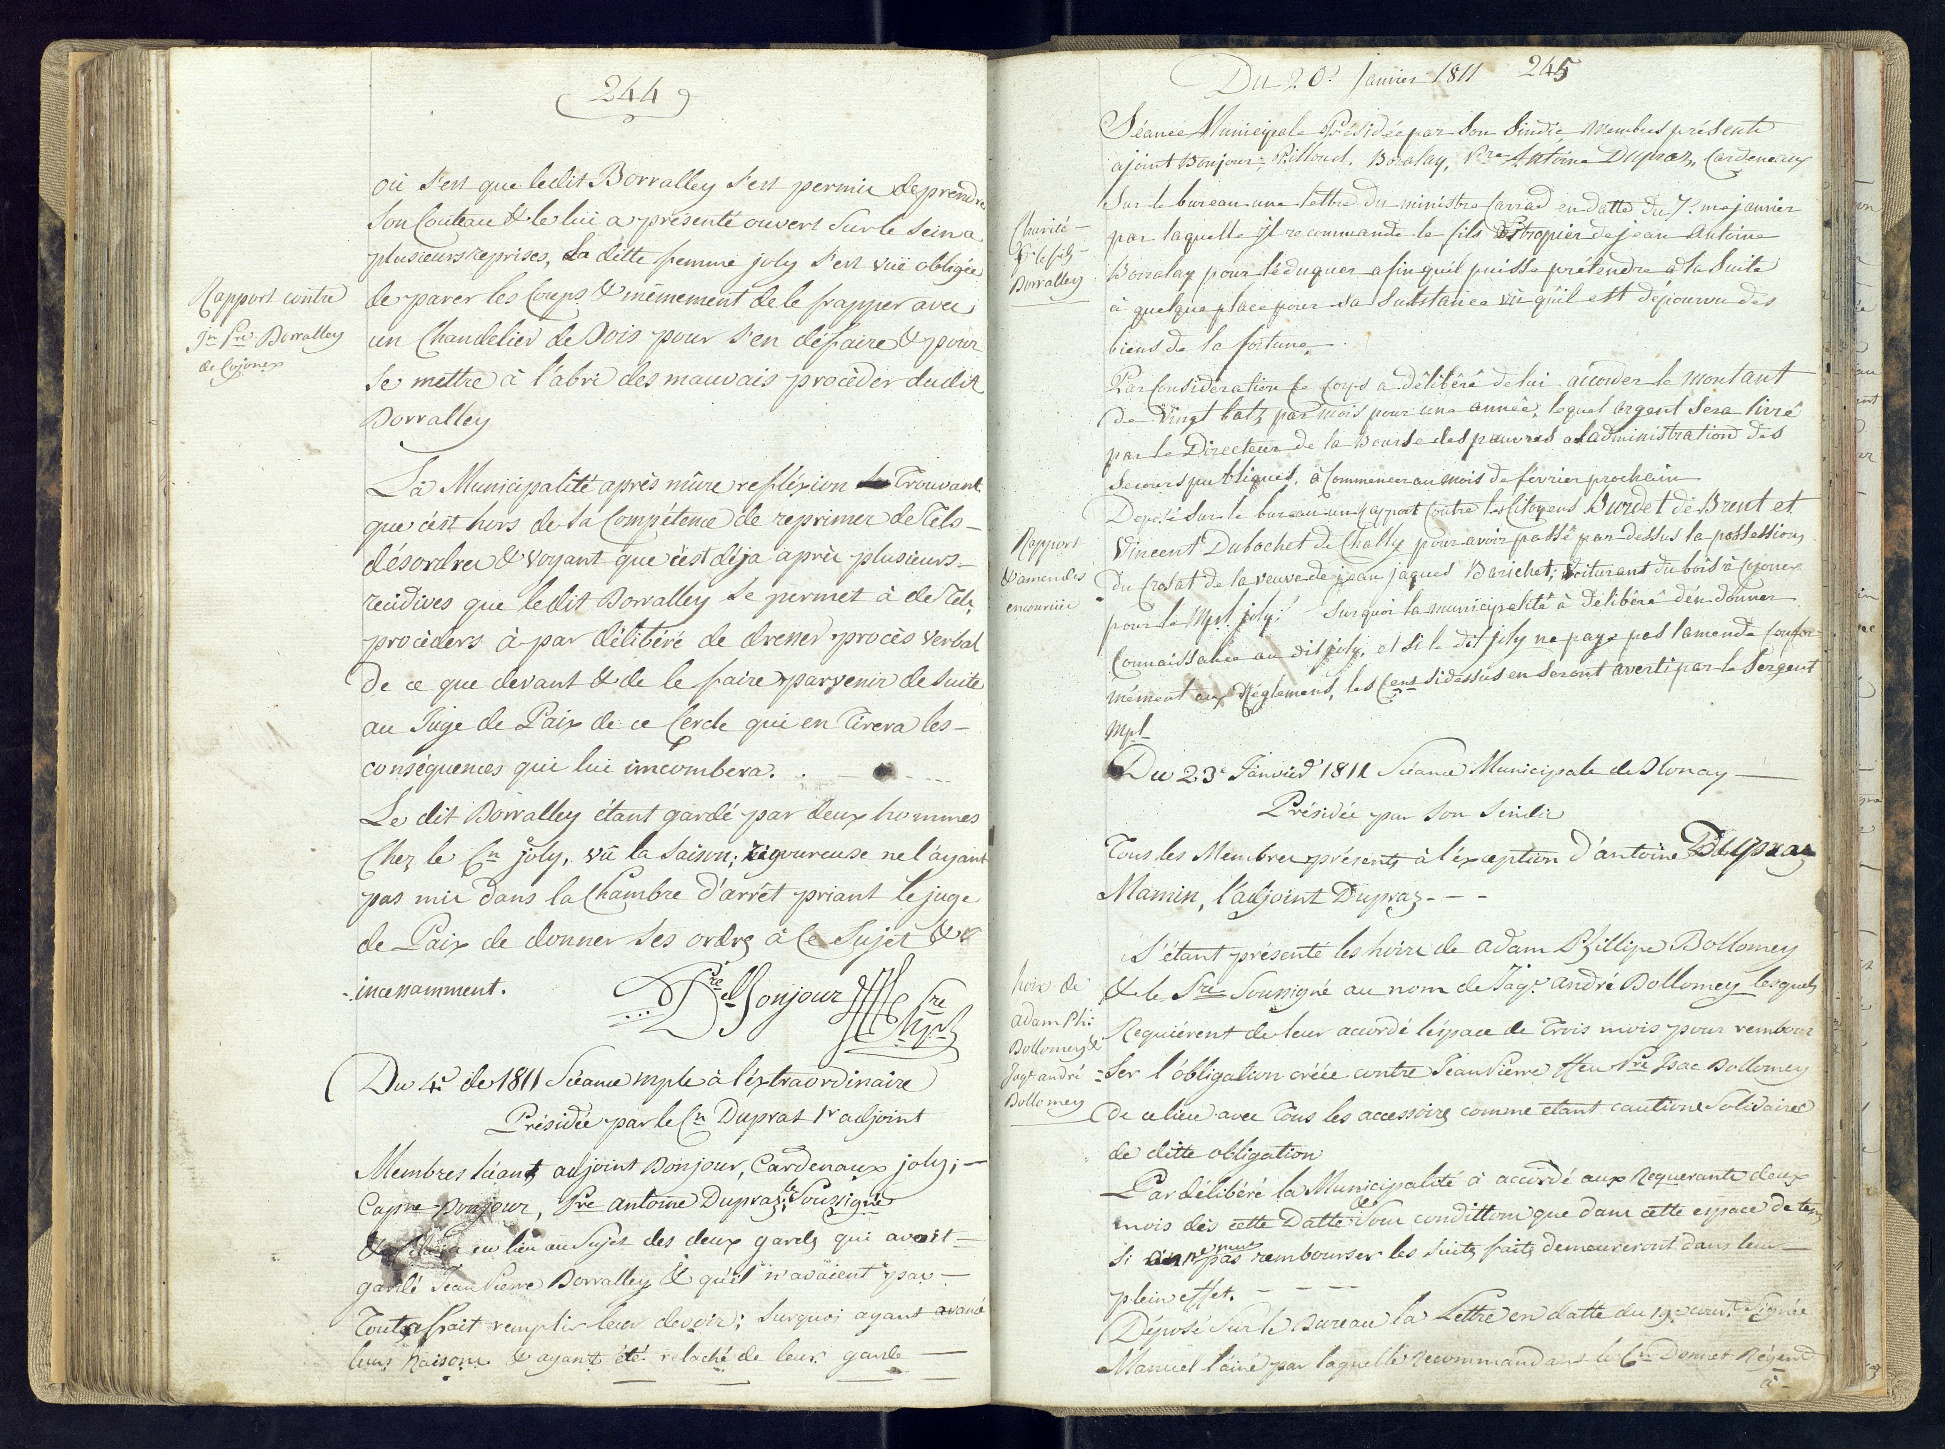 244
où s'est que ledit Borralley s'est permis de prendre
son Couteau & le lui a présenté ouvert sur le sein a
plusieurs reprises, La ditte femme joly s'est vüe obligée
de parer les Coups & mêmement de le frapper avec
Rapport contre
Jn Pre Borralley
de Cojonex
un Chandelier de Bois pour s'en défaire & pour
se mettre à l'abri des mauvais procéder dudit
Borralley
La Municipalité après mûre refléxion Trouvant
que c'est hors de sa Compétence de reprimer de Tels
désordres & voyant que c'est déja après plusieurs
recidives que ledit Borralley se permet à de Tels
procéders à par délibéré de dresser procès verbal
de ce que devant & de le faire parvenir de suite
au Juge de Paix de ce Cercle qui en Tirera les
conséquences qui lui incombera.
Le dit Borralley étant gardé par deux hommes
Chez le Cn joly, vû la saison; rigoureuse ne l'ayant
pas mis dans la Chambre d'arrêt priant le juge
de Paix de donner ses ordres à ce Sujet &
incessamment.
Bonjour
Du 4e de 1811 Séance mple à l'éxtraordinaire
Présidée par le Cn Dupras 1r adjoint
Membres séants adjoint Bonjour, Cardenaux joly;
Capne Bonjour, Pre antoine Dupraz; le Soussigné
eu lieu au Sujet des deux gardes qui avoit
gardé Jean Pierre Borralley & qu'il n'avaient pas
Toutafait remplis leur devoir; surquoi ayant avancé
leurs Raisons & ayant été relaché de leur garde
Du 20e Janvier 1811 245
Séance Municipale Présidée par son Sindic membres présents
ajoint Bonjour; Pilloud, Boralay, Pre Antoine Dupraz, Cardeneaux
Sur le bureau une lettre du ministre Carrad en datte du 7.me janvier
Charité
pr le fils
Borralley
par laquelle il recommande le fils Estropier de jean Antoine
Borralay pour l'éduquer afin qu'il puisse prétendre à la Suite
à quelque place pour sa Substance vû qu'il est dépourvu des
biens de la fortune
Par Considération ce Corps a délibéré de lui accorder le montant
de Vingt batz par mois pour une année, lequel argent sera livré
par le Directeur de la Bourse des pauvres a l'administration des
Secours publiques, à Commencer au mois de février prochain
Deposé sur le bureau un rapport Contre les Citoyens Burdet de Brent et
Rapport
& amendes
encourüe
Vincent Dubochet de Chally pour avoir passé par dessus la possession
du Crosat de la veuve de jean jaques Barichet; voiturant du bois à Cojonex
pour le Mpl. joly: Surquoi la municipalité à délibéré d'en donner
Connaissance au dit joly, et si le dit joly ne paye pas l'amende confor
mément aux Réglemens, les Cens si dessus en seront averti par le Sergent
Mpl
Du 23e Janvier 1811 Séance Municipale de Blonay
Présidée par Son Sindic
Tous les Membres présents à l'éxception d'antoine Dupraz
Mamin, l'adjoint Dupraz
S'étant présenté les hoirs de adam Phillipe Bollomey
hoirs de
adam Phi:
Bollomey &
Jaqs andré
Bollomey
& le Sre Soussigné au nom de Jaqs andré Bollomey lesquels
Requiérent de leur accordé l'éspace de Trois mois pour rembour
ser l'obligation créée contre Jean Pierre ffeu Pre Isac Bollomey
de ce lieu avec Tous les accessoires comme étant cautions Solidaires
de ditte obligation
Par délibéré la Municipalité à accordé aux Requerants deux
mois dès cette Datte sous condittions que dans cette espace de tems
si pas rembourser les suites faites demeureront dans leur
plein effet.
Déposé sur le Bureau la Lettre en datte du 19e cour. Signée
Manuel l'ainé par laquelle Recommandant le Cn Donnet Régent
à